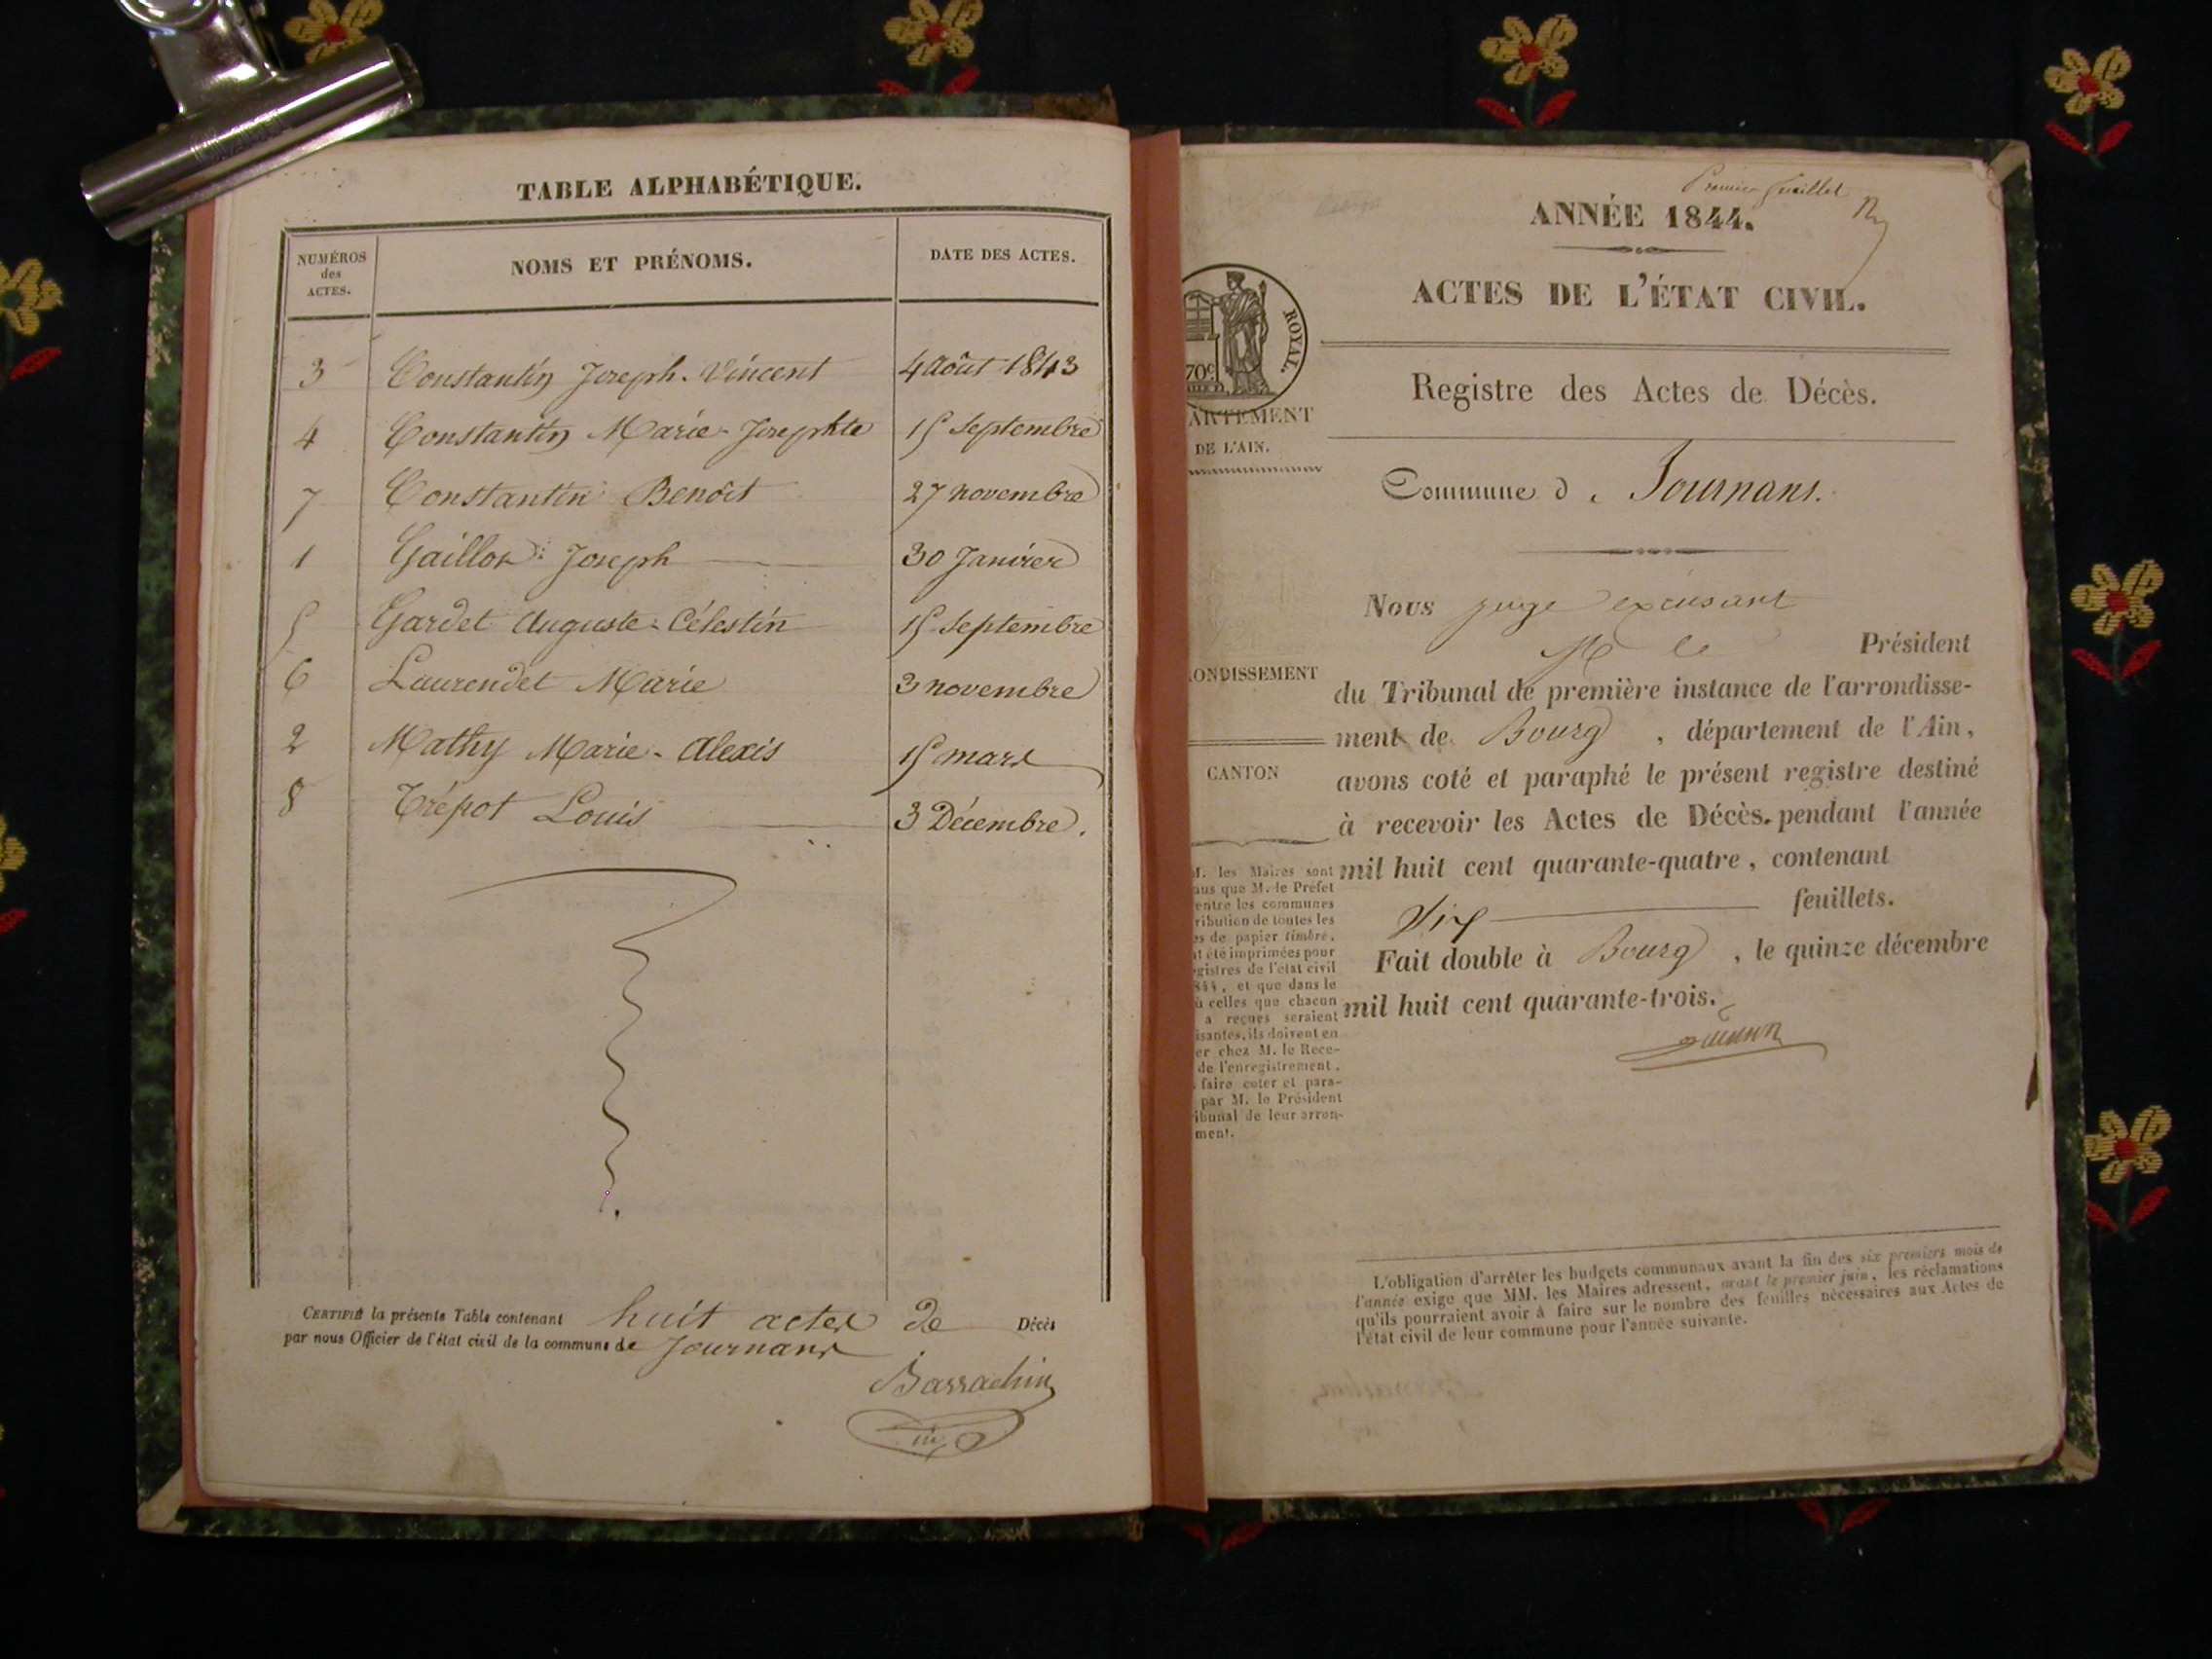 TABLE ALPHABÉTIQUE.
NUMÉROS des ACTES. NOMS ET PRÉNOMS. DATE DES ACTES.
3 Constantin Joseph-Vincent 4 août 1843
4 Constantin Marie-Josephte 15 septembre
7 Constantin Benoît 27 novembre
1 Gaillon Joseph 30 Janvier
5 Gardet Auguste-Célestin 15 septembre
6 Laurendet Marie 3 novembre
2 Mathy Marie-Alexis 15 mars
8 Trépot Louis 3 Décembre.
CERTIFIÉ la présente Table contenant huit actes de Décès
par nous Officier de l'état civil de la commune de Journans
Barrachin
Premier feuillet
ANNÉE 1844.
ACTES DE L'ÉTAT CIVIL.
ROYAL.
70c
Registre des Actes de Décès.
ARTEMENT
DE L'AIN.
Commune de Journans.
Nous juge excusant
M le Président
ONDISSEMENT
du Tribunal de première instance de l'arrondisse-
ment de Bourg, département de l'Ain,
CANTON
avons coté et paraphé le présent registre destiné
à recevoir les Actes de Décès, pendant l'année
mil huit cent quarante-quatre, contenant
six feuillets.
Fait double à Bourg, le quinze décembre
mil huit cent quarante-trois.
M. les Maires sont
us que M. le Préfet
entre les communes
ribution de toutes les
es de papier timbré,
t été imprimées pour
gistres de l'état civil
844, et que dans le
ù celles que chacun
a reçues seraient
isantes, ils doivent en
er chez M. le Rece-
de l'enregistrement,
faire coter et para-
par M. le Président
ibunal de leur arron-
ment.
L'obligation d'arrêter les budgets communaux avant la fin des six premiers mois de
l'année exige que MM. les Maires adressent, avant le premier juin, les réclamations
qu'ils pourraient avoir à faire sur le nombre des feuilles nécessaires aux Actes de
l'état civil de leur commune pour l'année suivante.